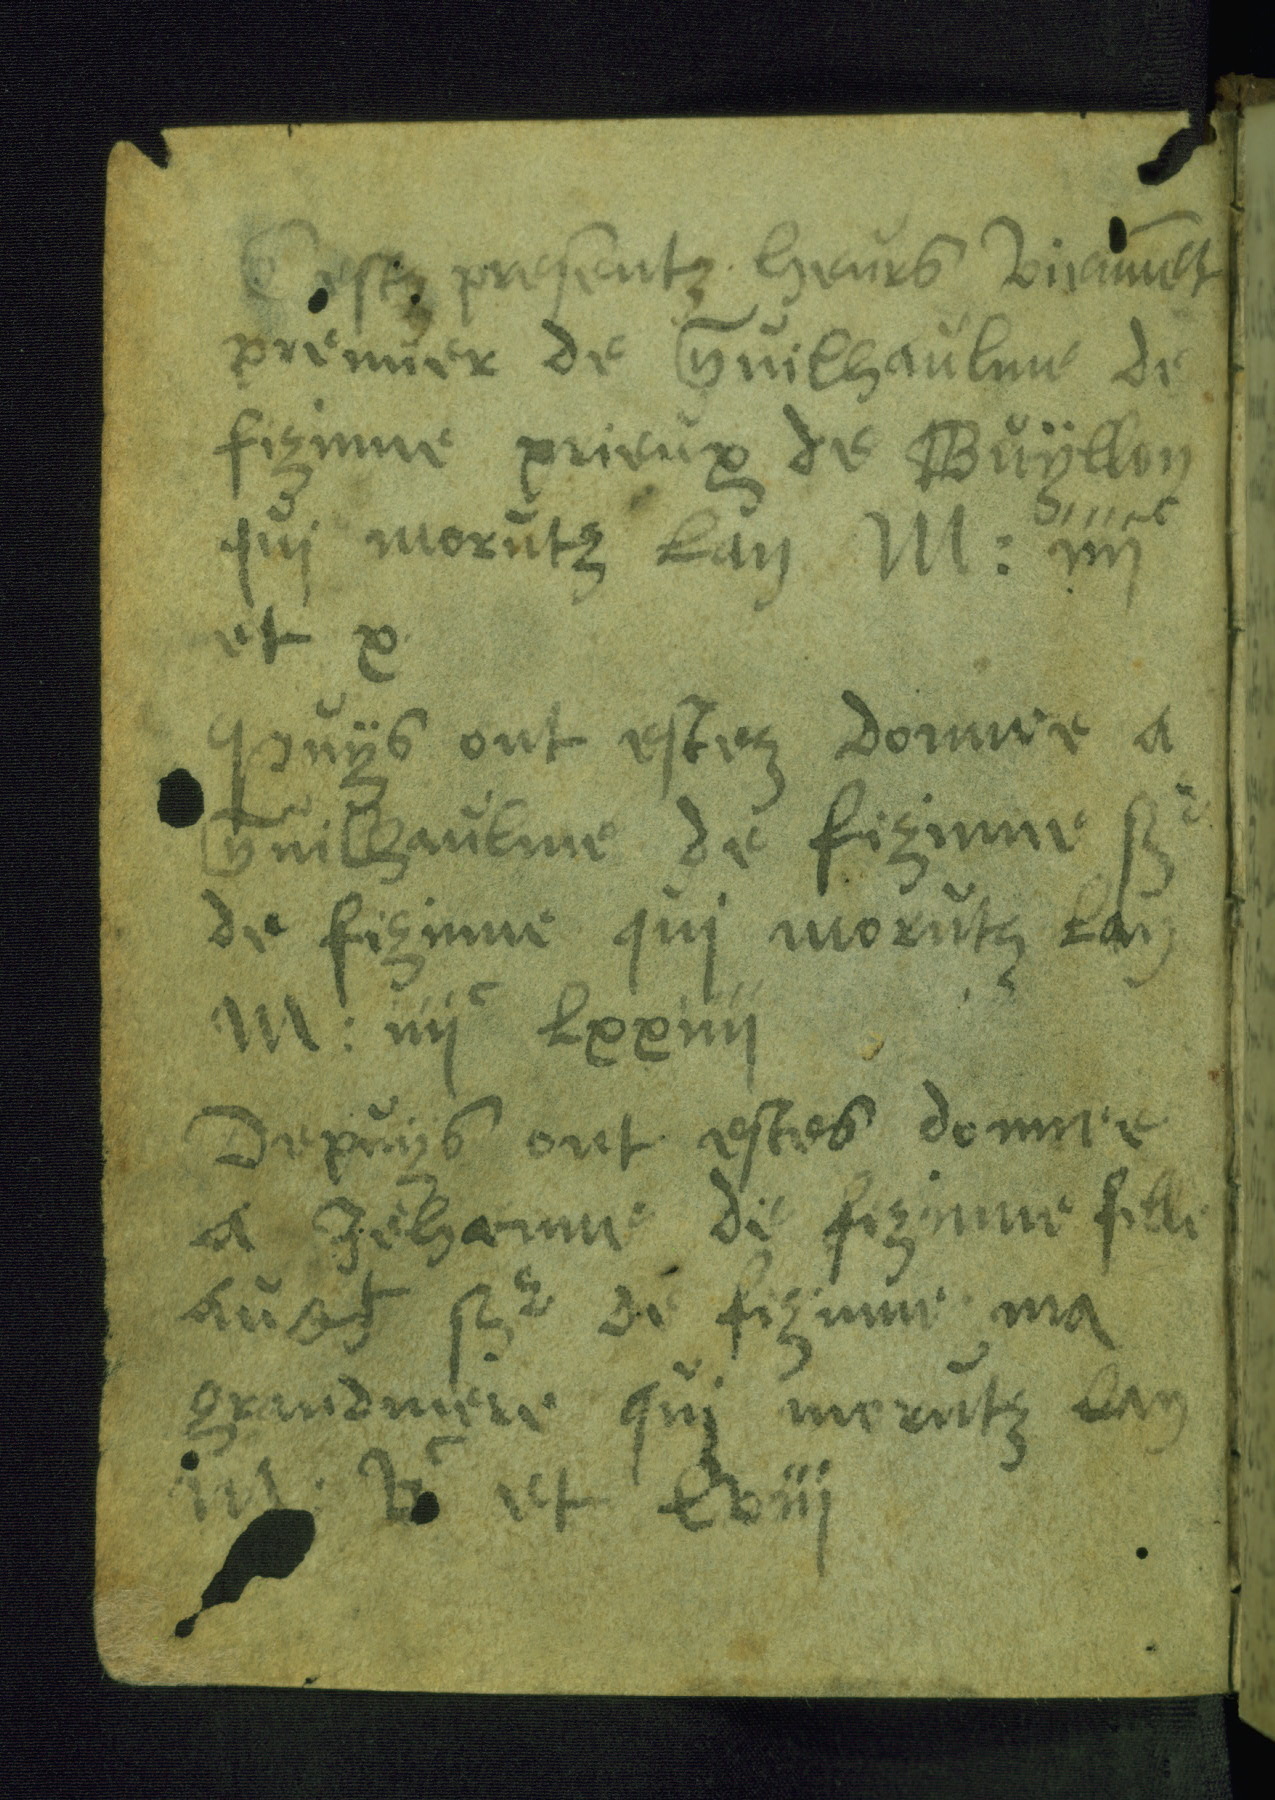 Cestz presentz heurs Viennet
premier de Guilhaulme de
fizinne prieux de Buÿllon
quj morutz lan M : iiij
et x
Puÿs ont estez donnee a
Guilhaulme de fizinne sʒʳ
de fizinne quj morutz lan
M : iiijᶜ lxxiiij
Depuÿs ont estes donnee
a Jehanne de fizinne fille
sʒʳ de fizinne ma
grandmere quj morutz lan
M : Vᶜ et lviij